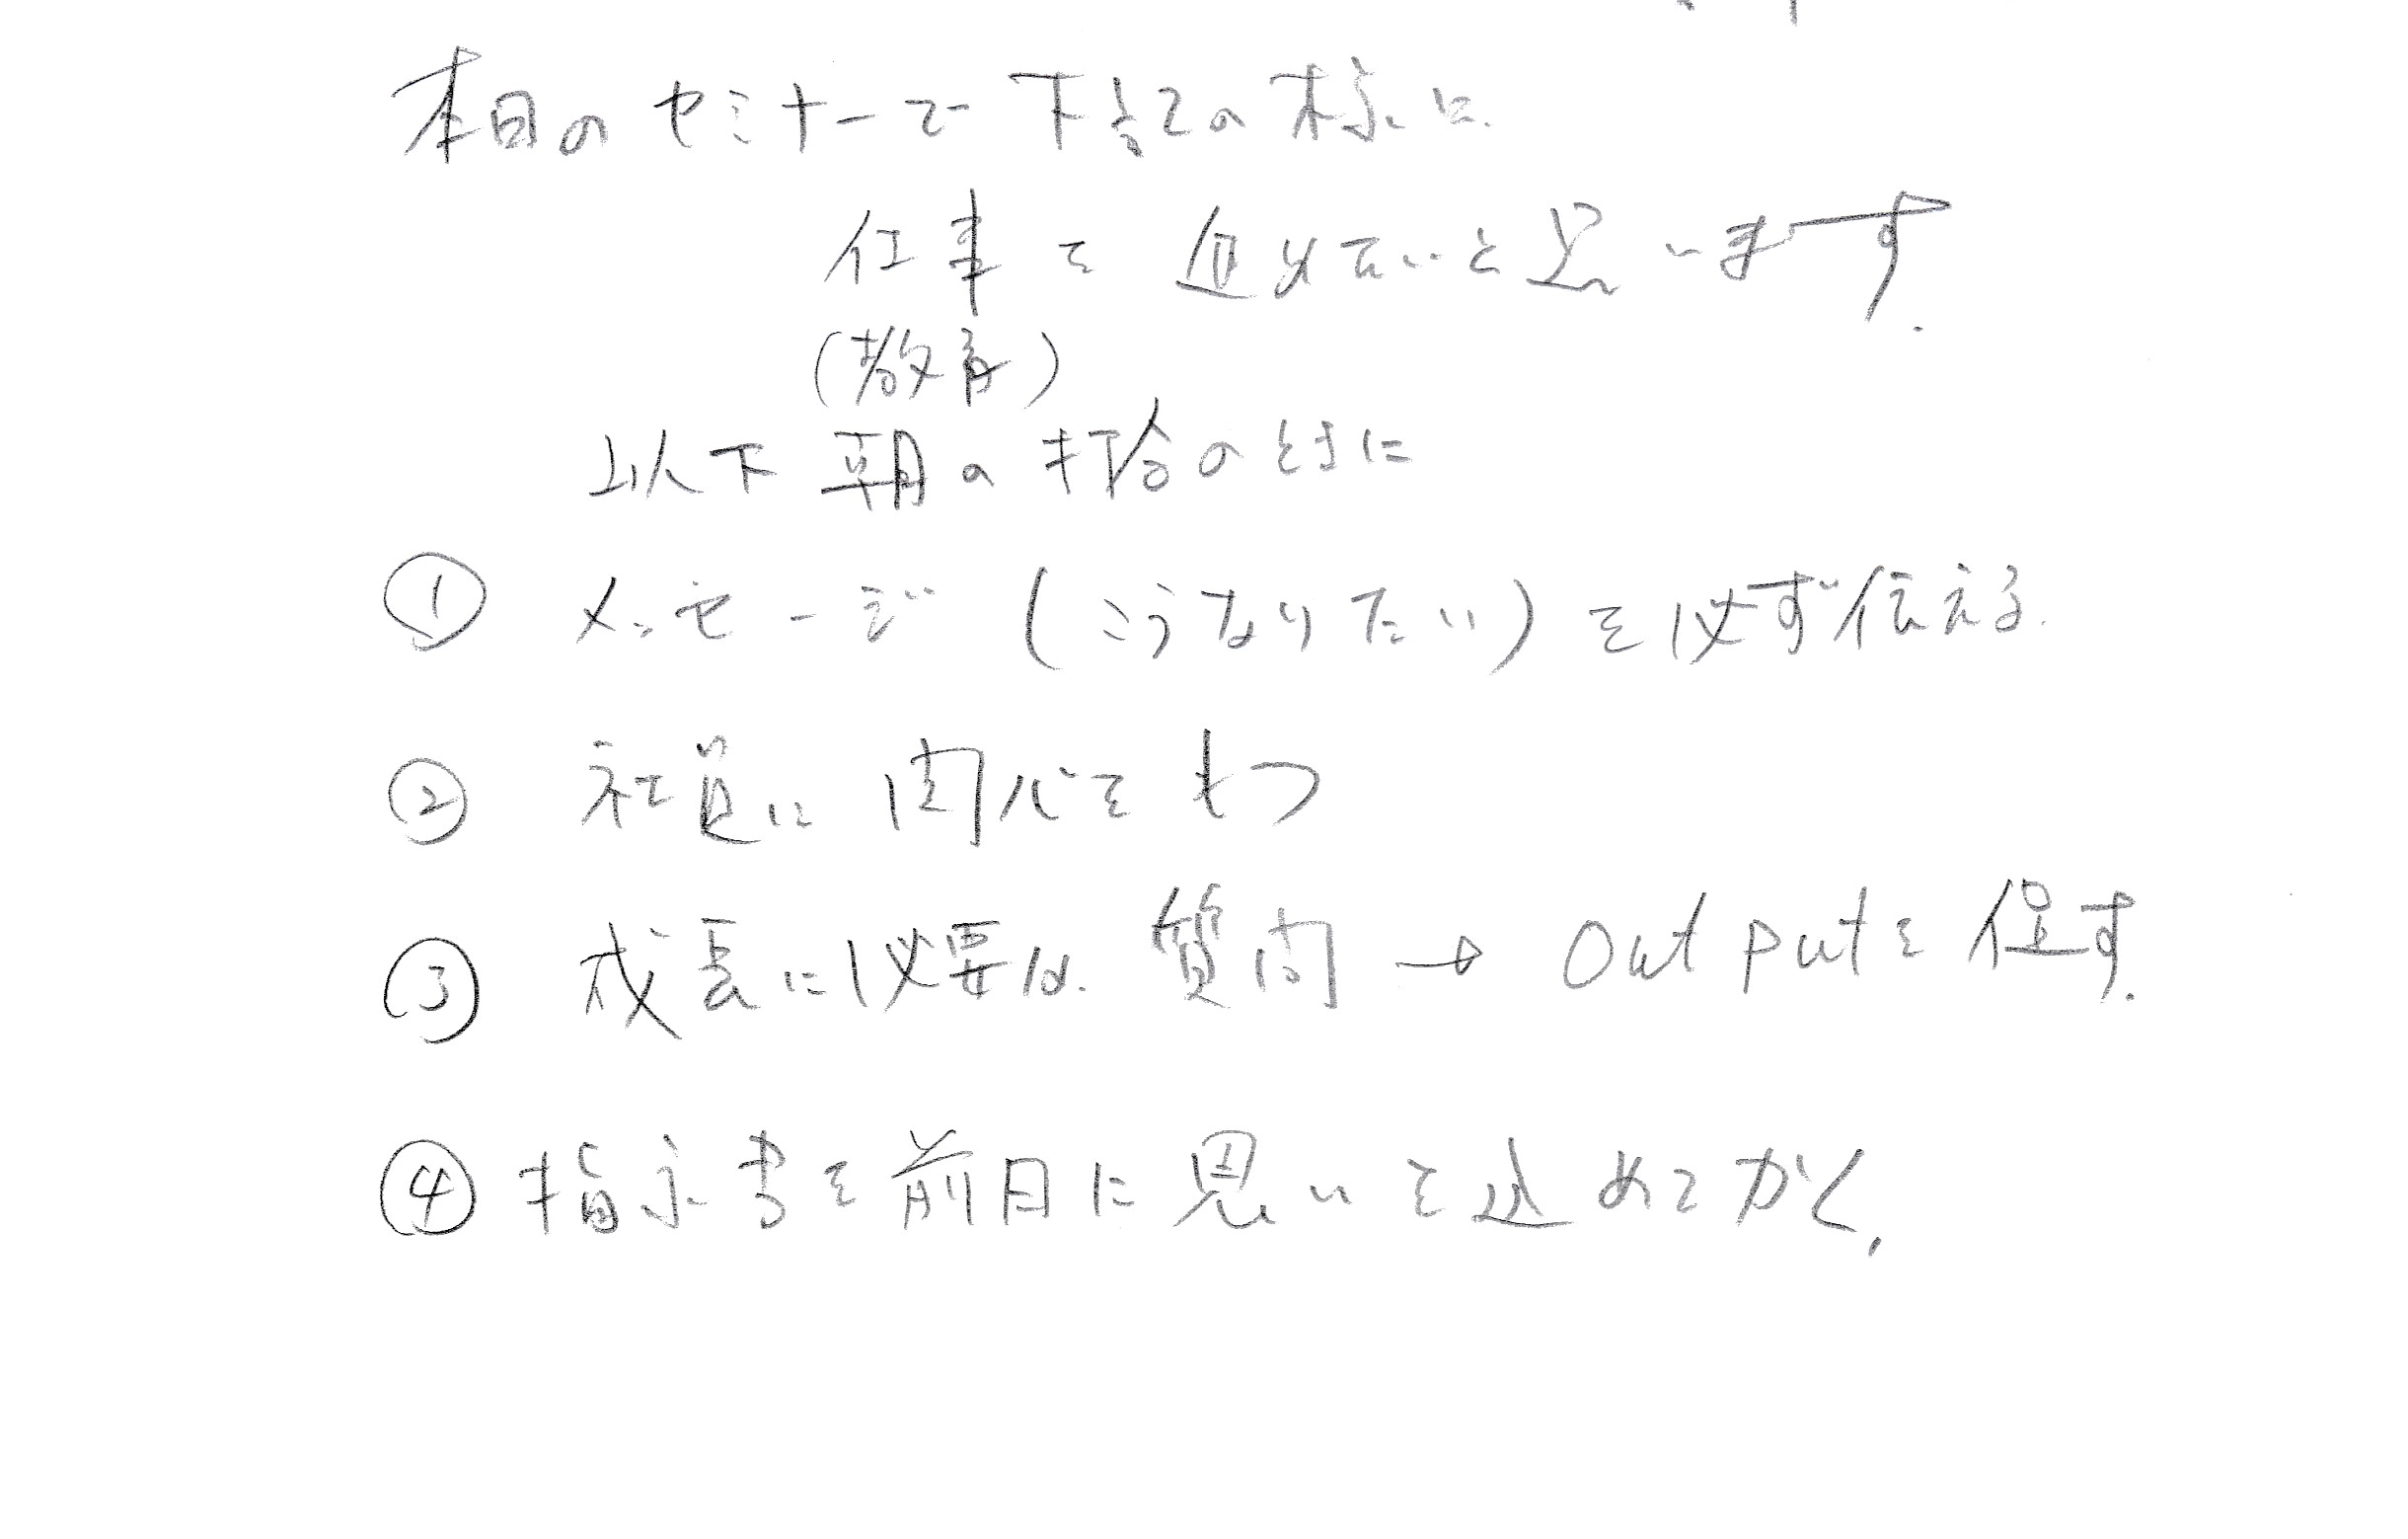 本日のセミナーで下記の様に
仕事を進めたいと思います.
(教育)
以下 朝の打合のときに
① メッセージ (こうなりたい) を必ず伝える.
② 社員に関心をもつ
③ 成長に必要な質問 → Out putを促す.
④ 指示書を前日に思いを込めてかく.